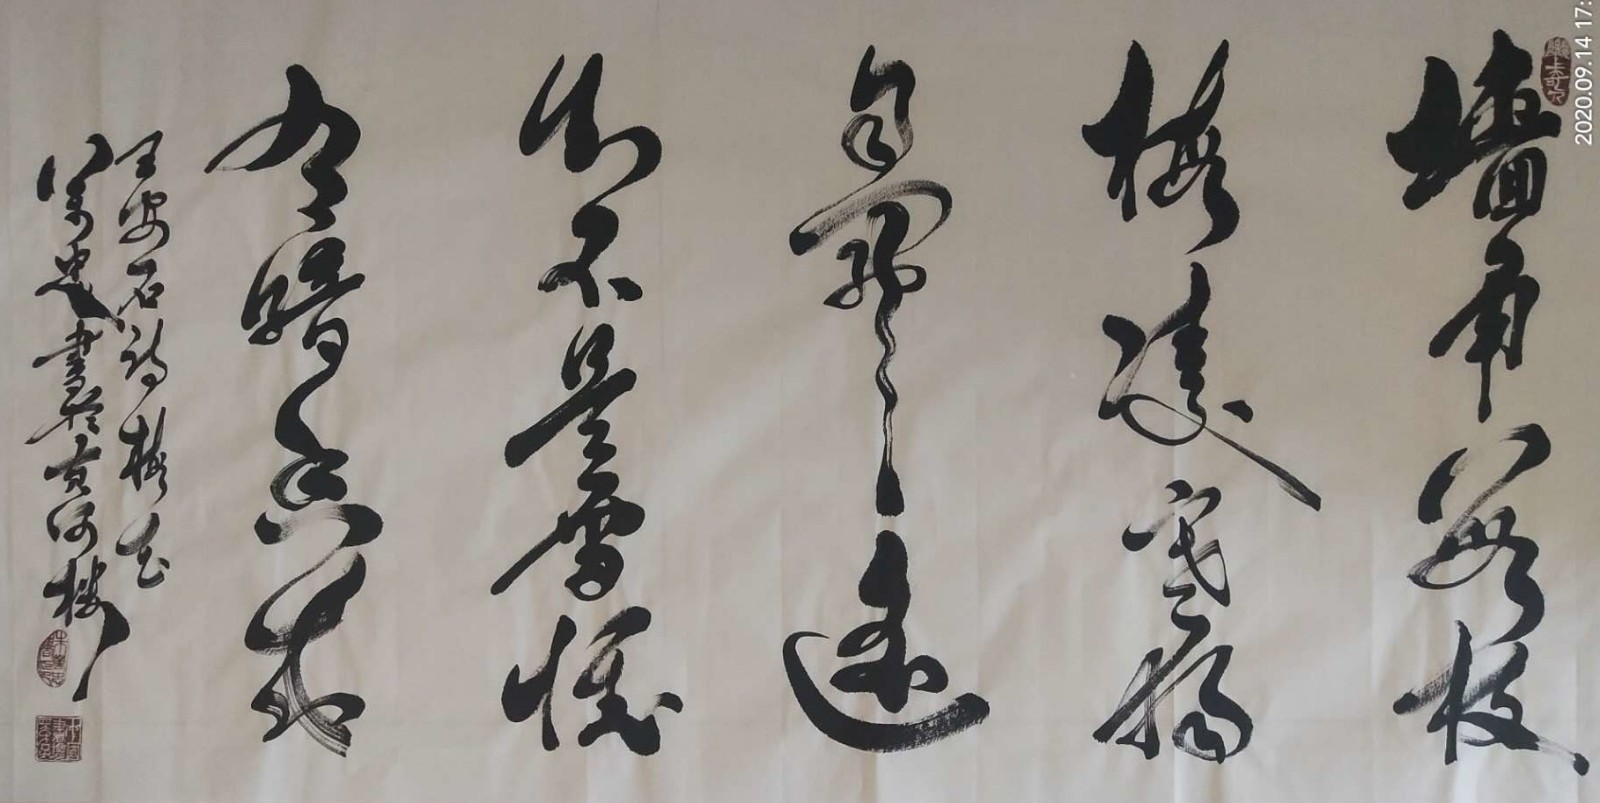 墙角数枝
梅凌寒独
自開遥
知不是雪惟
有暗香来
王安石诗梅花
忠書於黄河楼
2020.09.14 17: